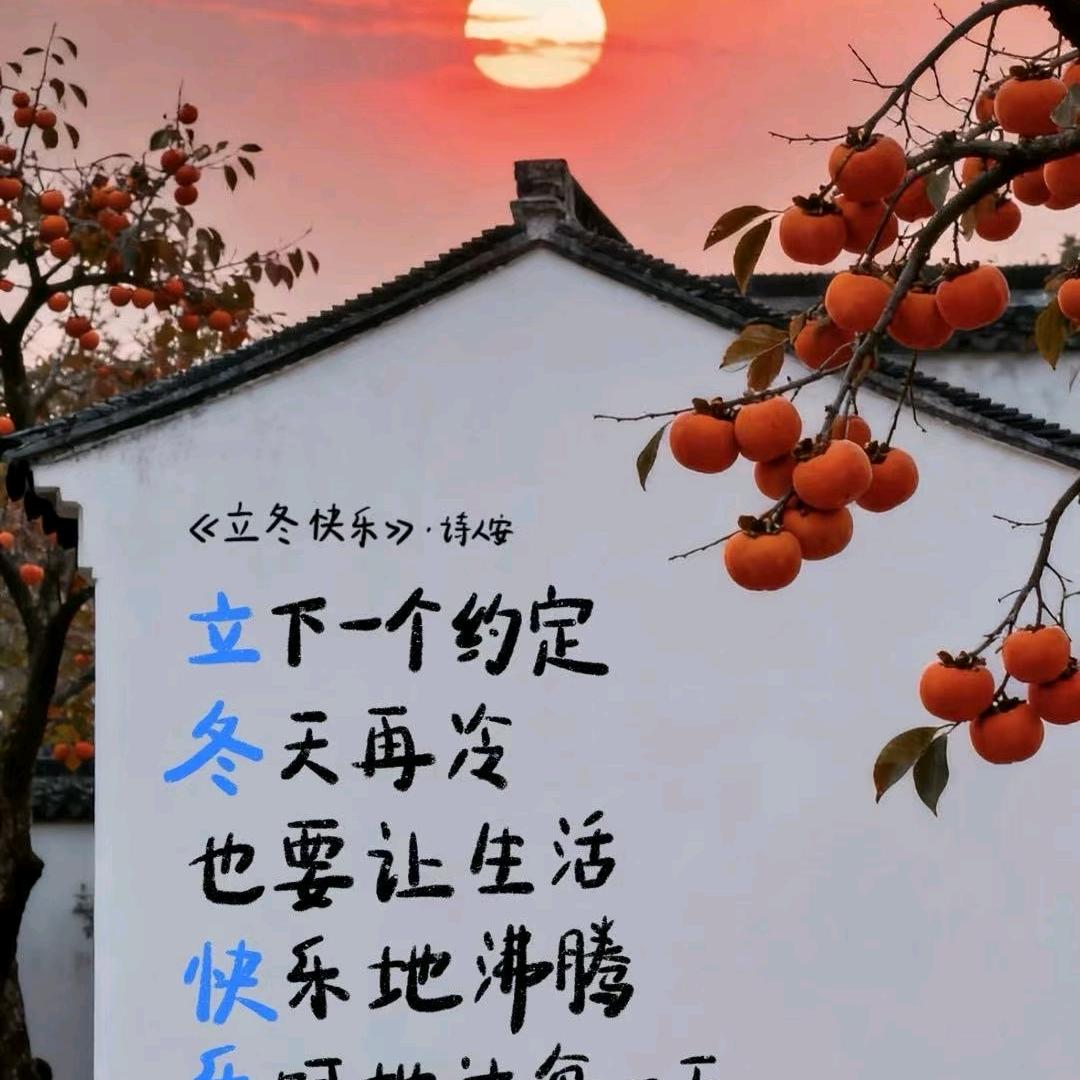 《立冬快乐》·诗人安
立下一个约定
冬天再冷
也要让生活
快乐地沸腾